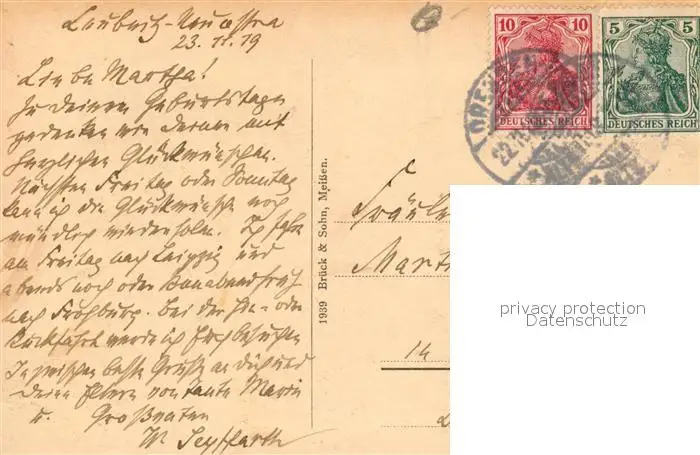 Laubnitz-Neuostra
23.11.19
Liebe Martha!
Zu deinem Geburtstage
gedenken wir deiner mit
herzlichen Glückwünschen.
Nächsten Freitag oder Sonntag
kann ich die Glückwünsche noch
mündlich wiederholen. Ich fahre
am Freitag nach Leipzig und
abends noch oder Sonnabend früh
nach Frohburg. Bei der Hin- oder
Rückfahrt werde ich Euch besuchen
Inzwischen beste Grüße an dich und
deine Eltern von Tante Marie
u. Großvater
W. Seyffarth
1939 Brück & Sohn, Meißen.
10 10
DEUTSCHES REICH
5 5
DEUTSCHES REICH
DRESDEN
22.11.
Fräule
Mart
14
privacy protection
Datenschutz